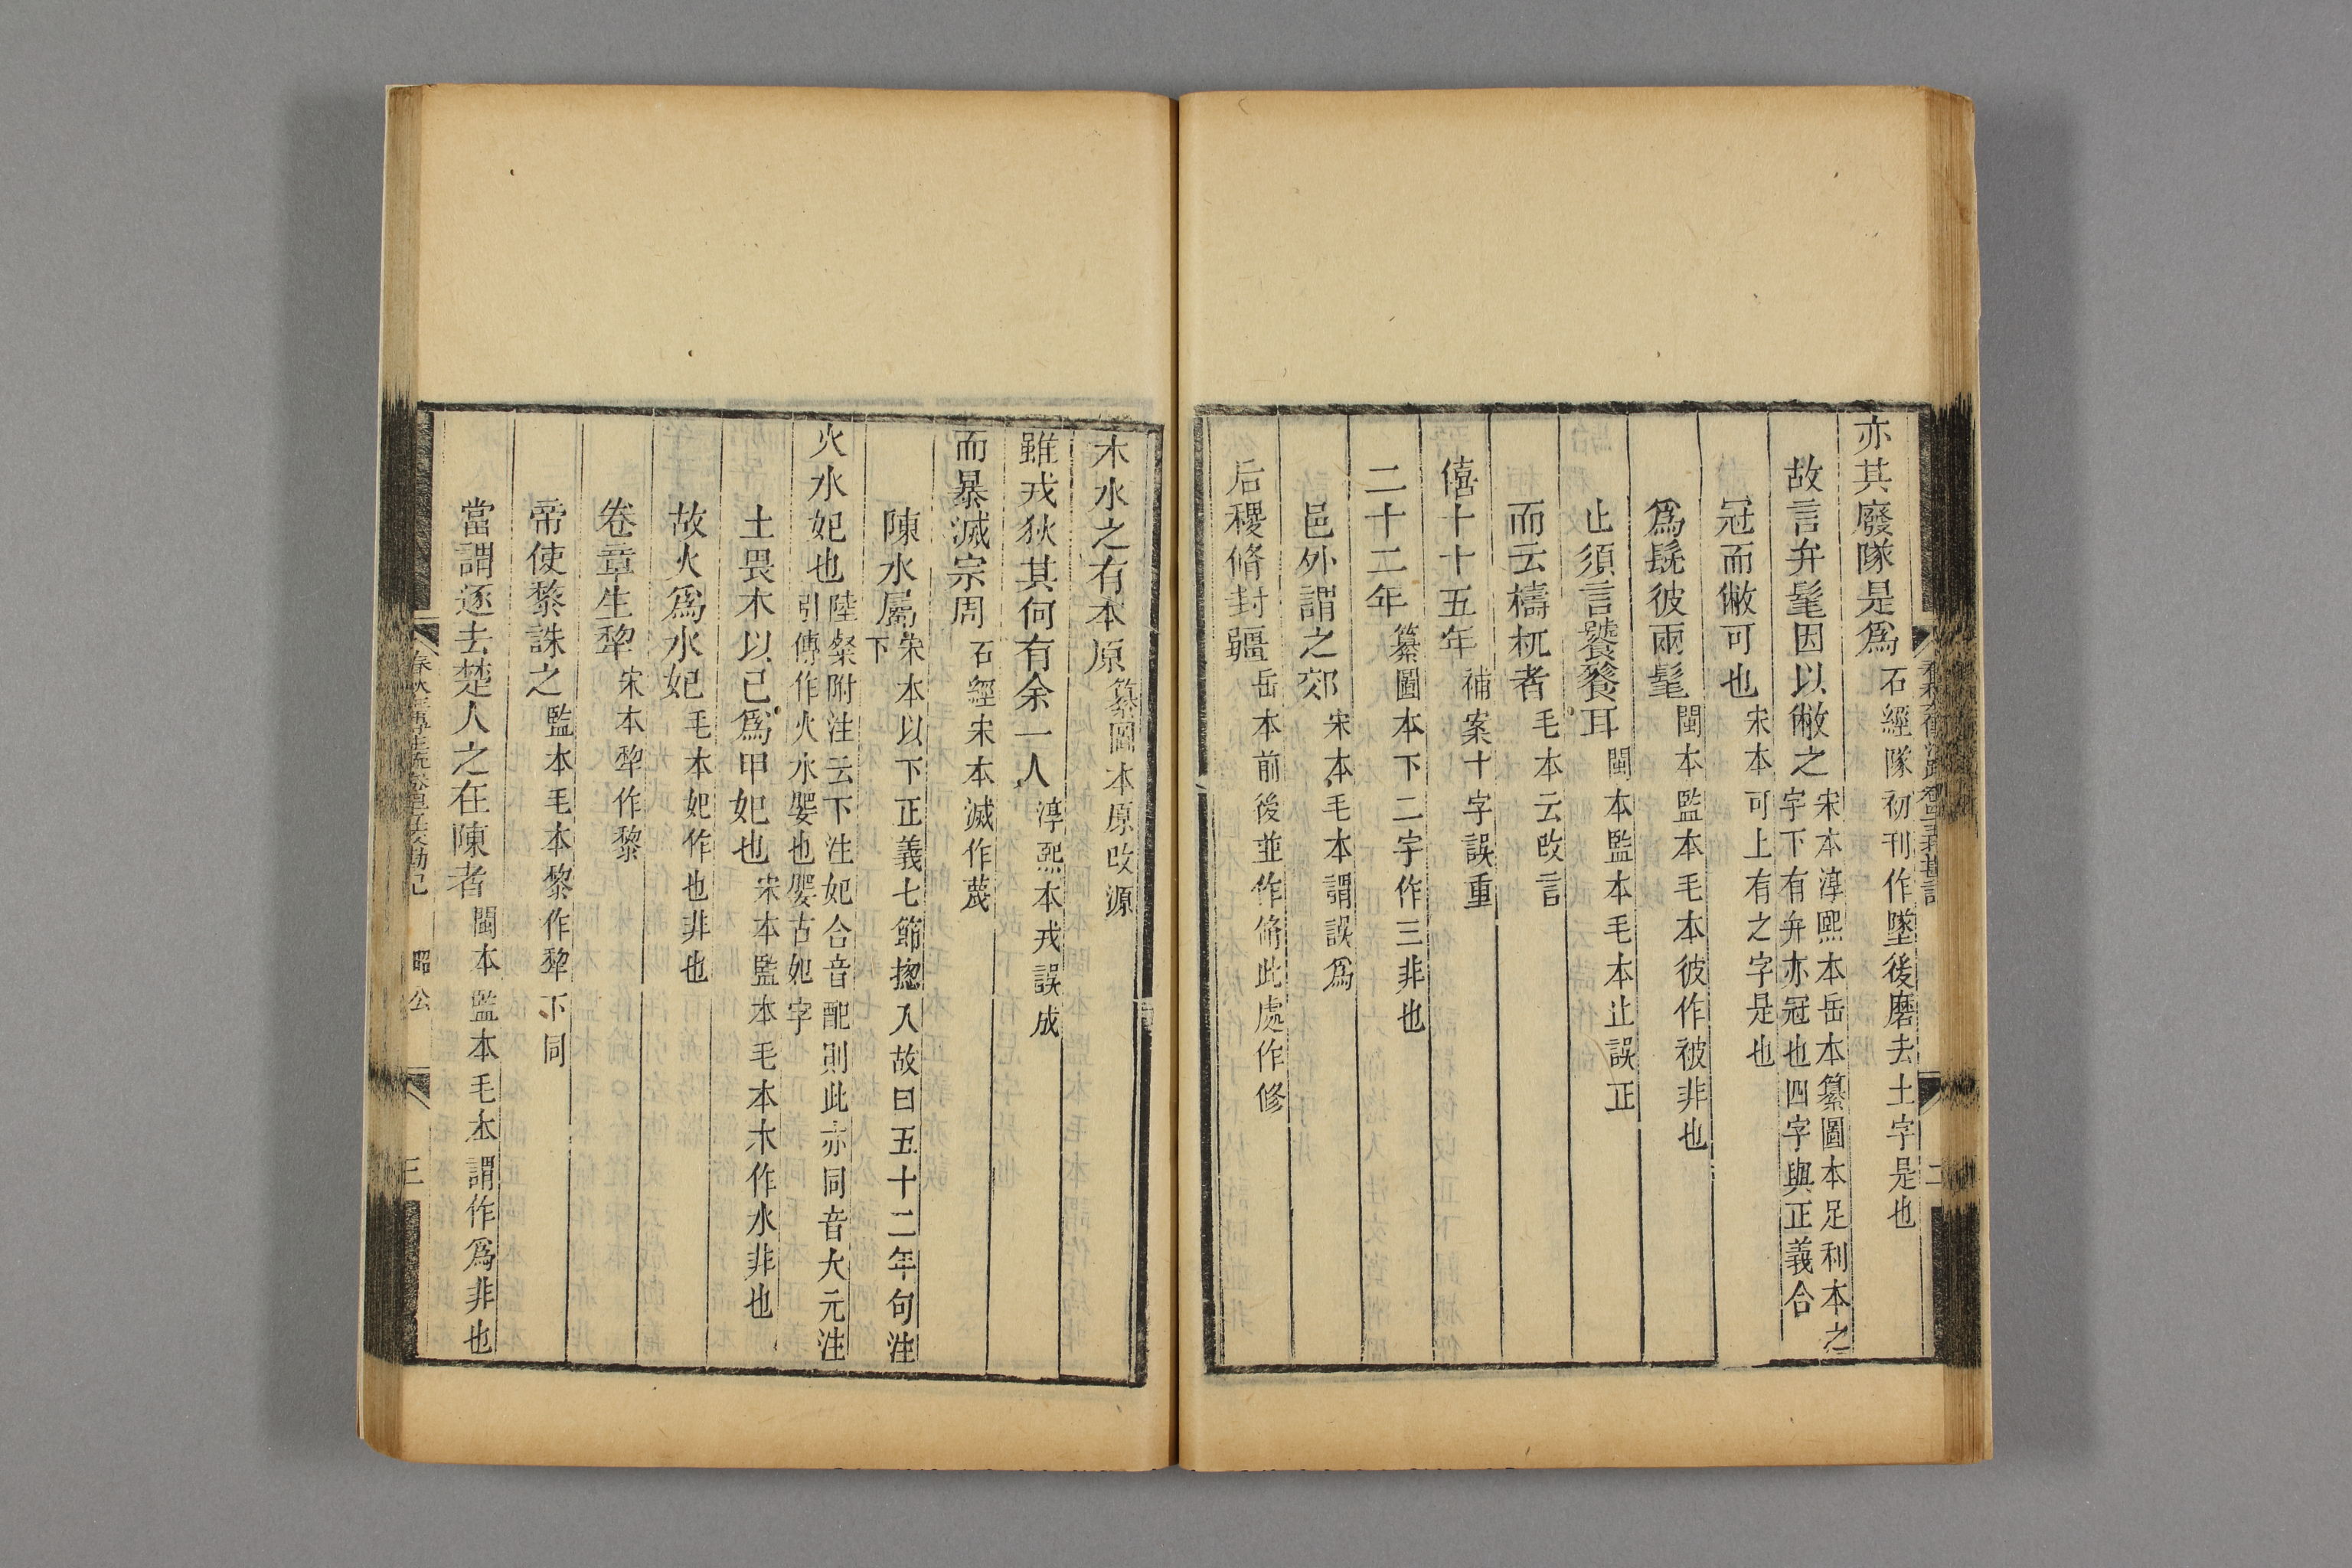 亦其廢隊是爲石經隊初刊作墜後磨去土字是也
故言弁髦因以敝之宋本淳熙本岳本纂圖本足利本之
字下有弁亦冠也四字與正義合
冠而敝可也宋本可上有之字是也
爲髧彼兩髦閩本監本毛本彼作被非也
止須言饕餮耳閩本監本毛本止誤正
而云檮杌者毛本云改言
僖十十五年補案十字誤重
二十二年纂圖本下二字作三非也
邑外謂之郊宋本毛本謂誤爲
后稷脩封疆岳本前後並作脩此處作修
木水之有本原纂圖本原改源
雖戎狄其何有余一人淳熙本戎誤成
而暴滅宗周石經宋本滅作蔑
陳水屬宋本以下正義七節揔入故曰五十二年句注
下
火水妃也陸粲附注云下注妃合音配則此亦同音大元注
引傳作火水嬰也嬰古妃字
土畏木以己爲甲妃也宋本監本毛本木作水非也
故火爲水妃毛本妃作也非也
卷章生犂宋本犂作黎
帝使黎誅之監本毛本黎作犂下同
當謂逐去楚人之在陳者閩本監本毛本謂作爲非也
昭公
三